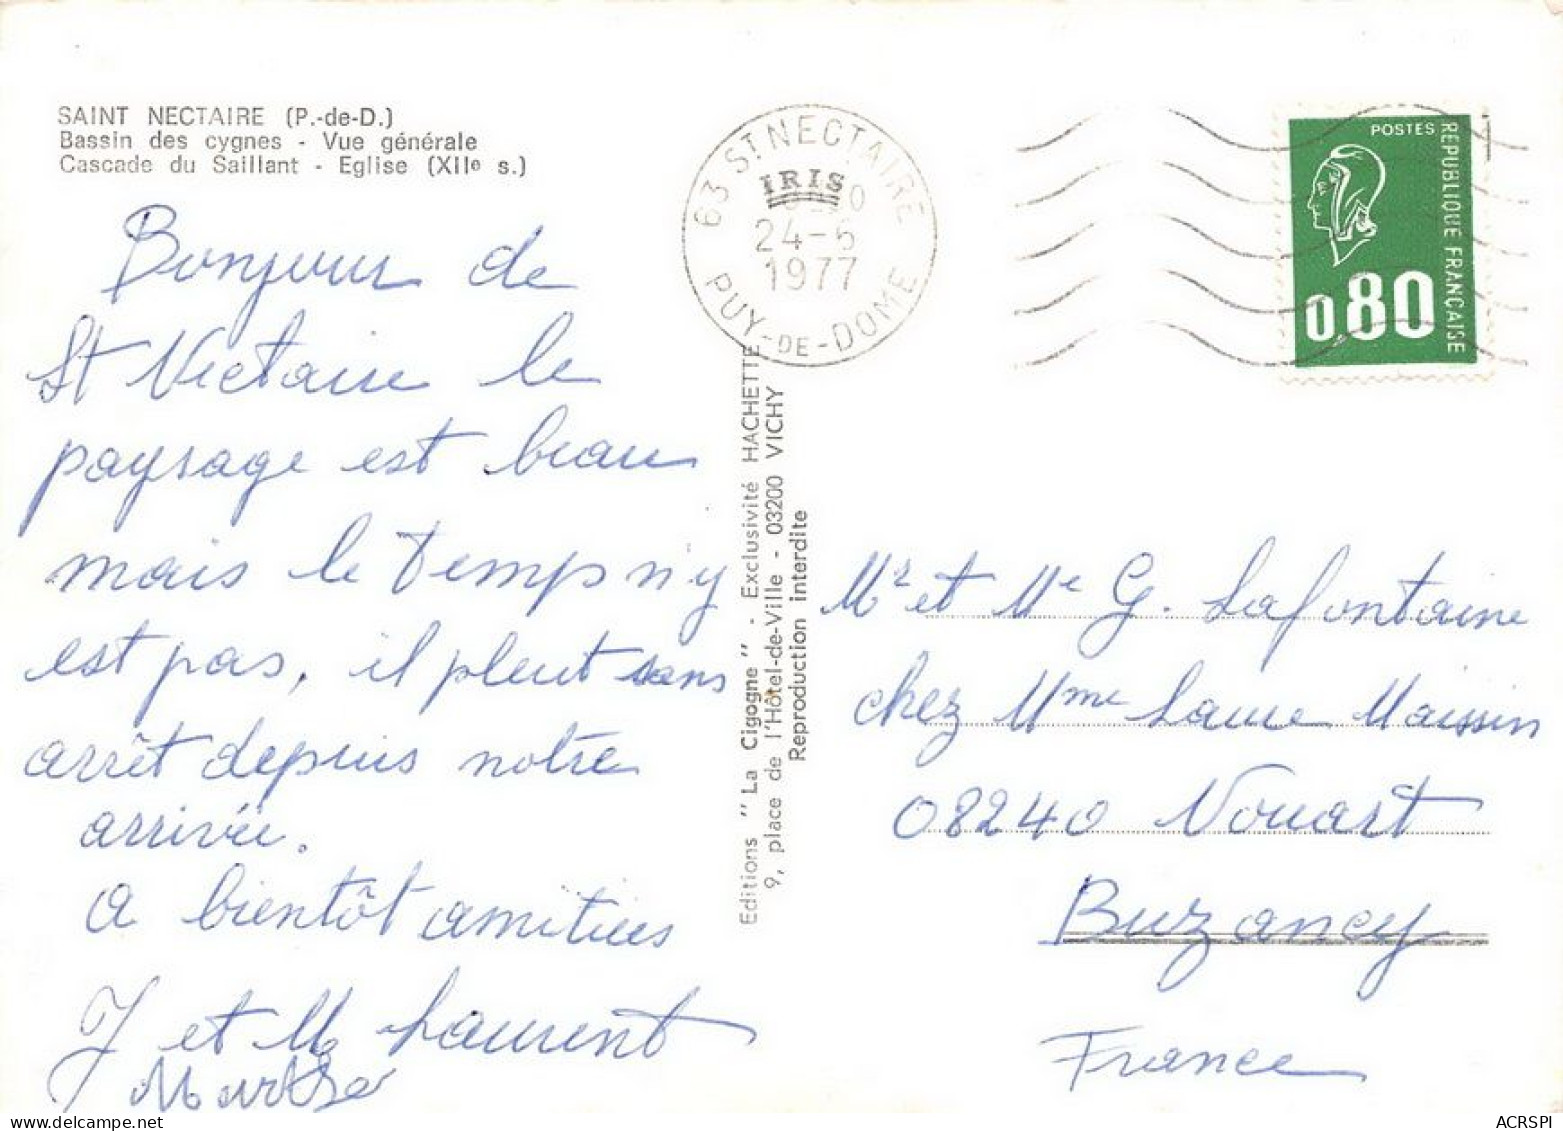 SAINT NECTAIRE (P.-de-D.)
Bassin des cygnes - Vue générale
Cascade du Saillant - Eglise (XIIe s.)
Bonjour de
St Nectaire le
paysage est beau
mais le temps n'y
est pas, il pleut sans
arrêt depuis notre
arrivée.
a bientôt amitiées
J et M Laurent
Marthe
Editions "La Cigogne" - Exclusivité HACHETTE
9, place de l'Hôtel-de-Ville - 03200 VICHY
Reproduction interdite
63 ST NECTAIRE
IRIS
24-6
1977
PUY-DE-DOME
POSTES
REPUBLIQUE FRANÇAISE
0,80
Mr et Me G. Lafontaine
chez Mme Laure Maissin
08240 Nouart
Buzancy
France
ACRSPI